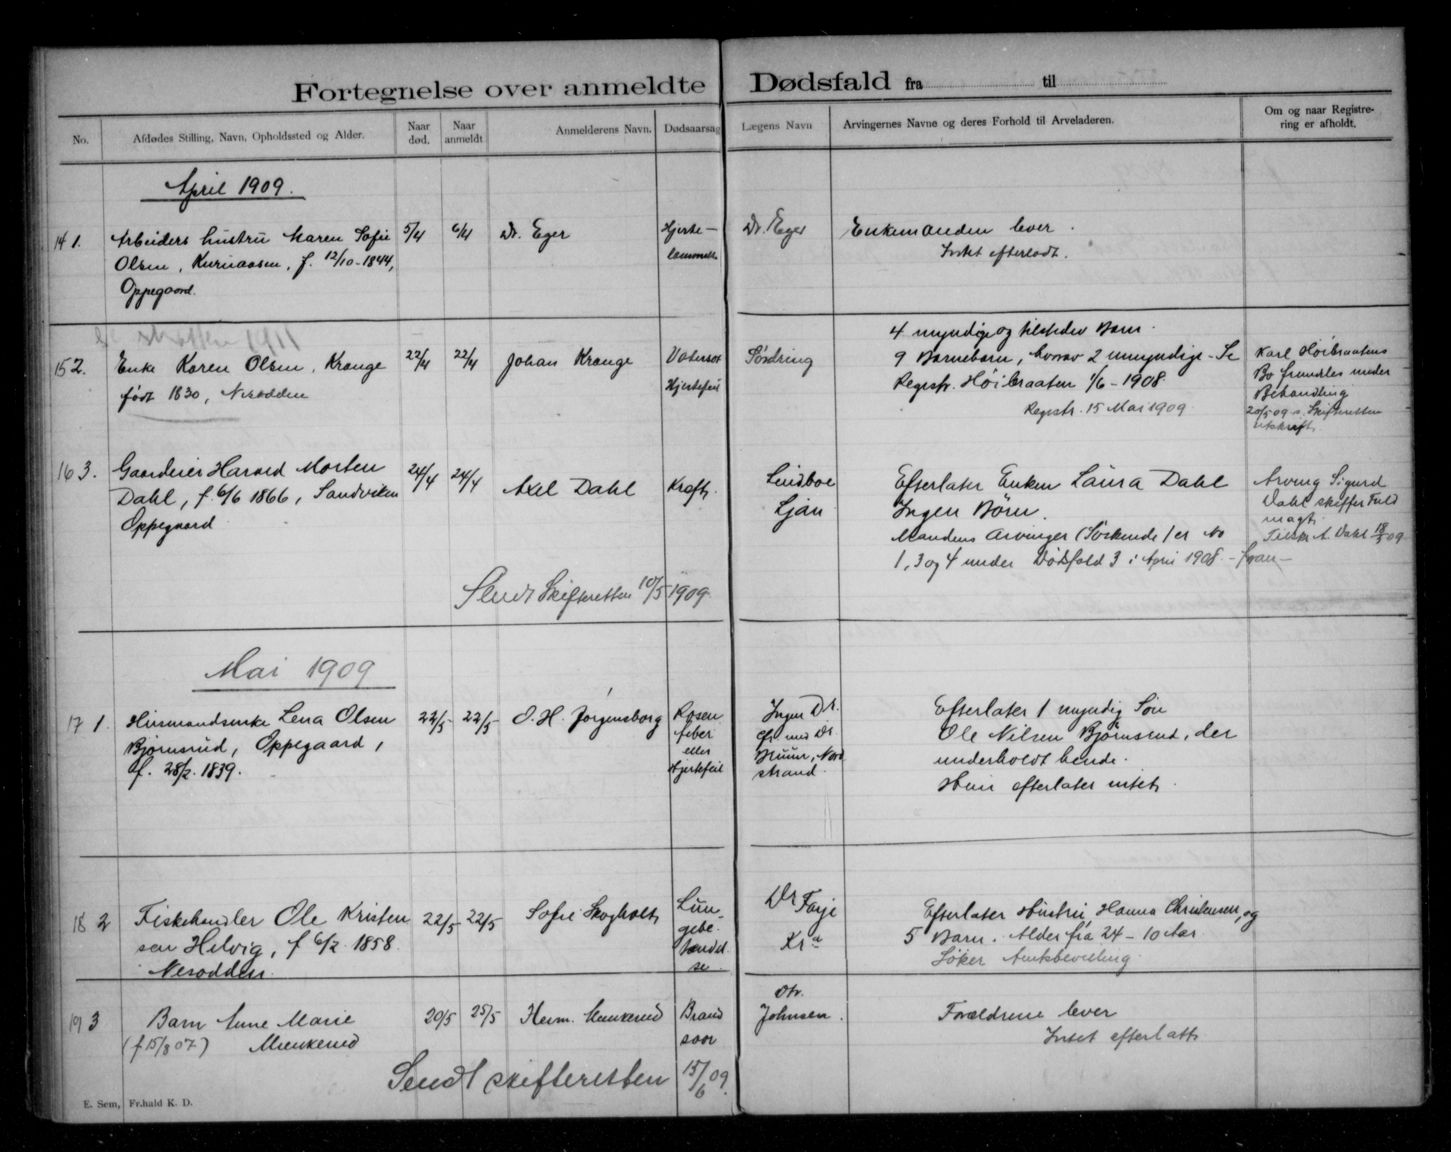 Fortegnelse over anmeldte Dødsfald fra til
No. Afdødes Stilling, Navn, Opholdssted og Alder. Naar død. Naar anmeldt Anmelderens Navn. Dødsaarsag Lægens Navn Arvingernes Navne og deres Forhold til Arveladeren. Om og naar Registrering er afholdt.
April 1909.
14 1. Arbeiders hustru Maren Sofie 5/4 6/4 Dr. Eger Hjerte- Dr. Eger Enkemanden lever.
Olsen, f. 12/10-1844, lammelse Intet efterladt.
Oppegaard.
1911
4 myndige og tilstedev Barn.
15 2. Enke Karen Olsen, Krange 22/4 22/4 Johan Krange Vatersot 9 Barnebarn, hvorav 2 umyndige - Se Karl Høibraatens
født 1830, Nesodden Hjertefeil Regestr. Høibraaten 1/6-1908. Bo fremdles under
Behandling
Regestr. 15 Mai 1909. 20/5 09 s. Skifteretten
utskrift.
16 3. Gaardeier Harald Morten 24/4 24/4 Axel Dahl Kræft. Lindboe Efterlater Enken Laura Dahl Arving Sigurd
Dahl, f. 6/6 1866, Sandviken Ljan Ingen Børn. Dahl skifter Fuld
Oppegaard magt.
Mandens Arvinger (Søskende) er No A. Dahl 18/5 09
1, 3 og 4 under Dødsfald 3 i April 1908.
Sendt Skifteretten 10/5 1909.
Mai 1909
17 1. Husmandsenke Lena Olsen 22/5 22/5 O. H. Jørgensborg Rosen Ingen Dr. Efterlater 1 myndig Søn
Bjørnsrud, Oppegaard, feber Dr. Ole Nilsen Bjørnsrud, der
f. 28/2. 1839. eller Nord underholdt hende.
Hjertefeil strand. Hun efterlater intet.
18 2 Fiskehandler Ole Kristen 22/5 22/5 Sofie Skogholt Lun- Dr Farje Efterlater Hustru, Hanna Christensen, og
sen Helvig, f 6/2. 1858. gebe- Kra 5 Barn. Alder fra 24-10 Aar.
Nesodden. tændel Søker Amtsbevilling.
se
19 3 Barn Anne Marie 20/5 25/5 Herm. Munkerud Brand Dr. Johnsen. Forældrene lever
(f 15/8 07) Munkerud saar Intet efterlatt.
Sendt skifteretten 15/6 09.
E. Sem, Fr.hald K. D.